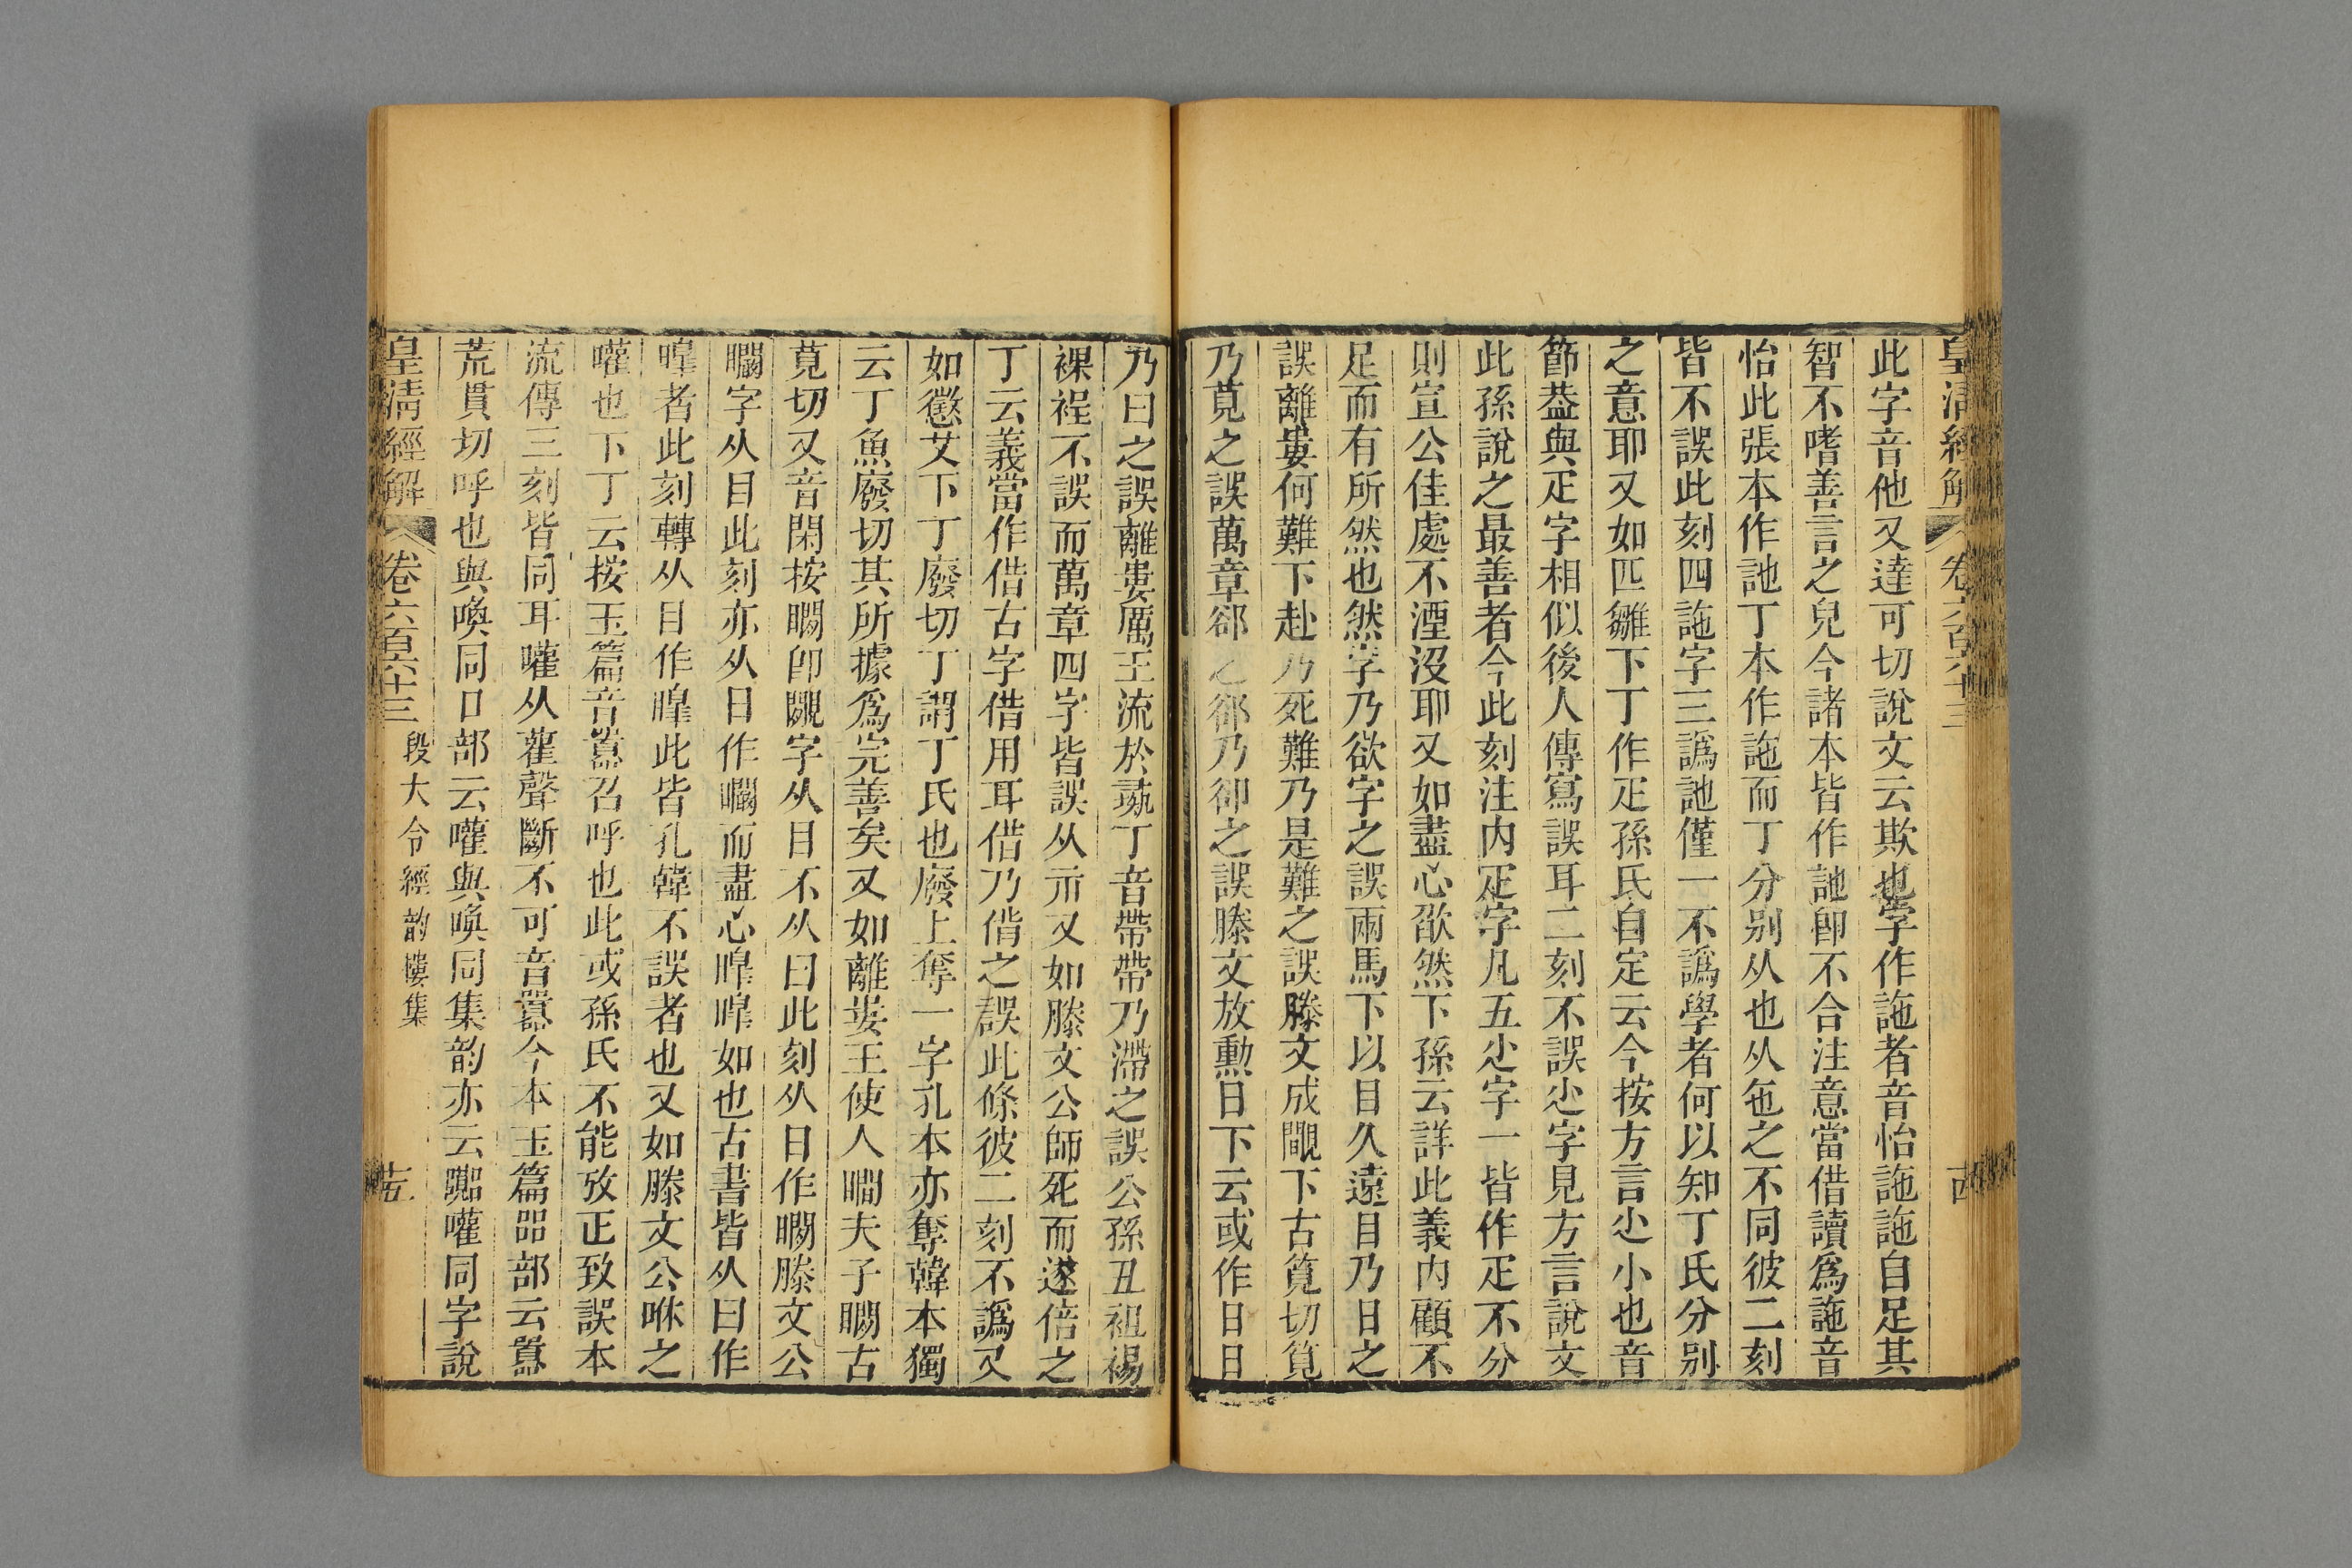 皇清經解 卷六百六十三 十四
此字音他又達可切說文云欺也字作詑者音怡訑訑自足其
智不嗜善言之皃今諸本皆作訑卽不合注意當借讀爲訑音
怡此張本作訑丁本作詑而丁分別从也从㐌之不同彼二刻
皆不誤此刻四詑字三譌訑僅一不譌學者何以知丁氏分别
之意耶又如匹雛下丁作疋孫氏自定云今按方言尐小也音
節葢與疋字相似後人傳寫誤耳二刻不誤尐字見方言說文
此孫說之最善者今此刻注内疋字凡五尐字一皆作疋不分
則宣公佳處不湮沒耶又如盡心欿然下孫云詳此義内顧不
足而有所然也然字乃欲字之誤兩馬下以目久遠目乃日之
誤離婁何難下赴乃死難乃是難之誤滕文成覵下古筧切筧
乃莧之誤萬章郤之郤乃卻之誤滕文放勳日下云或作日日
乃曰之誤離婁厲王流於彘丁音帶帶乃滯之誤公孫丑袒裼
裸裎不誤而萬章四字皆誤从示又如滕文公師死而遂倍之
丁云義當作偝古字借用耳偝乃偕之誤此條彼二刻不譌又
如懲艾下丁廢切丁謂丁氏也廢上奪一字孔本亦奪韓本獨
云丁魚廢切其所據爲完善矣又如離婁王使人瞷夫子瞷古
莧切又音閑按瞷卽覸字从目不从日此刻从日作瞷滕文公
矙字从目此刻亦从日作矙而盡心皞皞如也古書皆从日作
皞者此刻轉从目作睴此皆孔韓不誤者也又如滕文公咻之
嚾也下丁云按玉篇音囂召呼也此或孫氏不能攷正致誤本
流傳三刻皆同耳嚾从雚聲斷不可音囂今本玉篇㗊部云囂
荒貫切呼也與喚同口部云嚾與喚同集韵亦云嚾同字說
皇清經解 卷六百六十三 段大令經韵樓集 十五